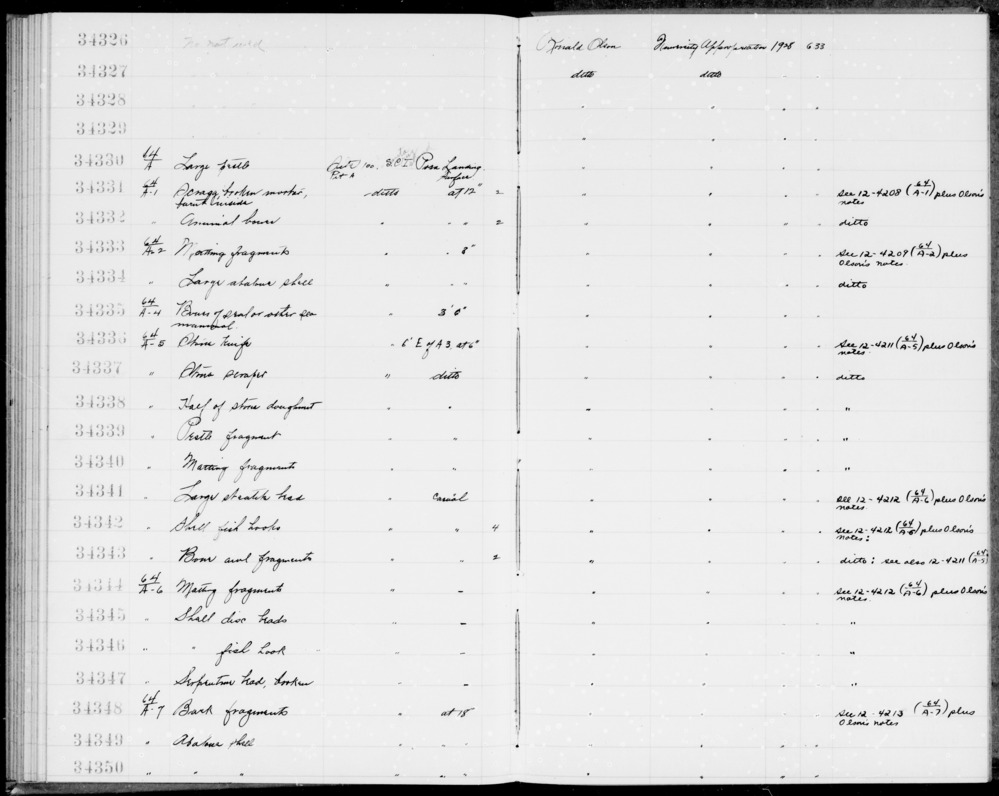 34326 No not used Ronald Olson University Appropriation 1928 633
34327 ditto ditto
34328 " " " "
34329 " " " "
34330 64/A Large pestle Pit A Posa Landing Surface " " " "
34331 64/A-1 broken mortar, ditto at 12" 2 " " " " See 12-4208 (64/A-1) plus Olson's
notes
34332 " Animal bones " " " 2 " " " " ditto
34333 64/A-2 Matting fragments " " 8" " " " " See 12-4209 (64/A-2) plus
Olson's notes.
34334 " Large abalone shell " " " " " " " ditto
34335 64/A-4 Bones of seal or other sea " 3' 0" " " " "
mammal.
34336 64/A-5 Stone knife " 6' E of A3, at 6" " " " " See 12-4211 (64/A-5) plus Olson's
notes.
34337 " Stone scraper " ditto " " " " ditto
34338 " Half of stone doughnut " " " " " " "
34339 " Pestle fragment " " " " " " "
34340 " Matting fragments " " " " " " "
34341 " Large steatite bead " Casual " " " " See 12-4212 (64/A-6) plus Olson's
notes.
34342 " Shell fish hooks " " 4 " " " " See 12-4212 (64/A-6) plus Olson's
notes:
34343 " Bone awl fragments " " 2 " " " " ditto: see also 12-4211 (64/A-5)
34344 64/A-6 Matting fragments " – " " " " See 12-4212 (64/A-6) plus Olson's
notes.
34345 " Shell disc beads " – " " " " "
34346 " " fish hook " – " " " " "
34347 " Serpentine bead, broken " – " " " " "
34348 64/A-7 Bark fragments " at 18" " " " " See 12-4213 (64/A-7) plus
Olson's notes
34349 " Abalone shell " " " " " "
34350 " " " " " " " " "